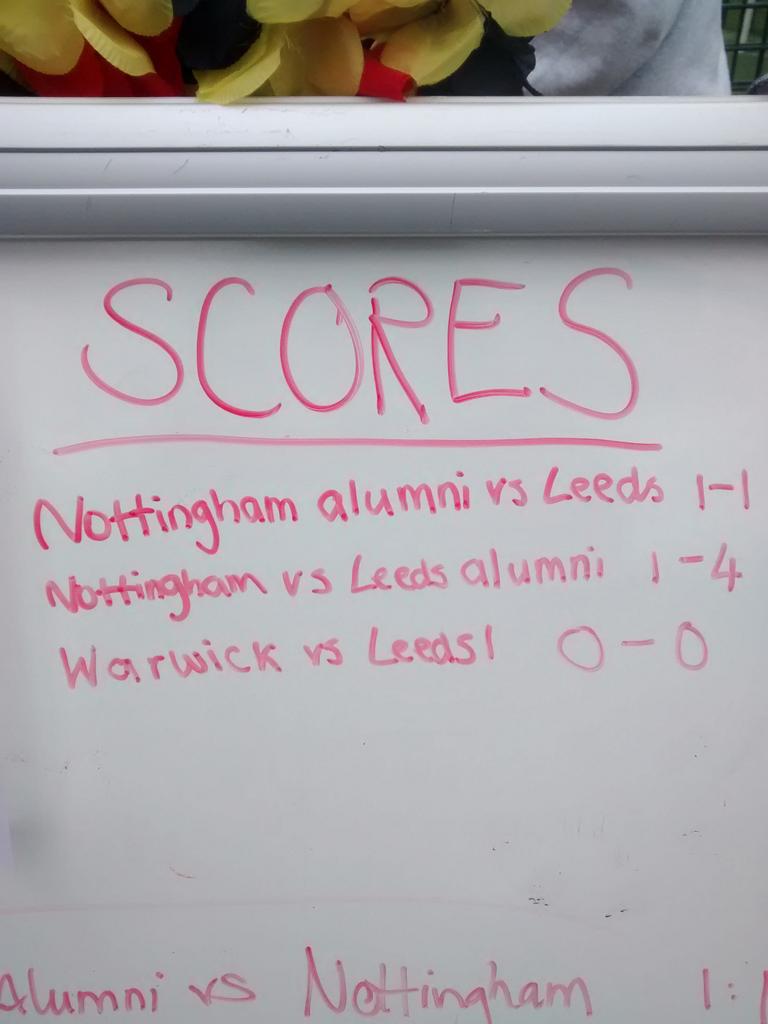 SCORES
Nottingham alumni vs Leeds 1-1
Nottingham vs Leeds alumni 1-4
Warwick vs Leeds 1 0-0
Alumni vs Nottingham 1: